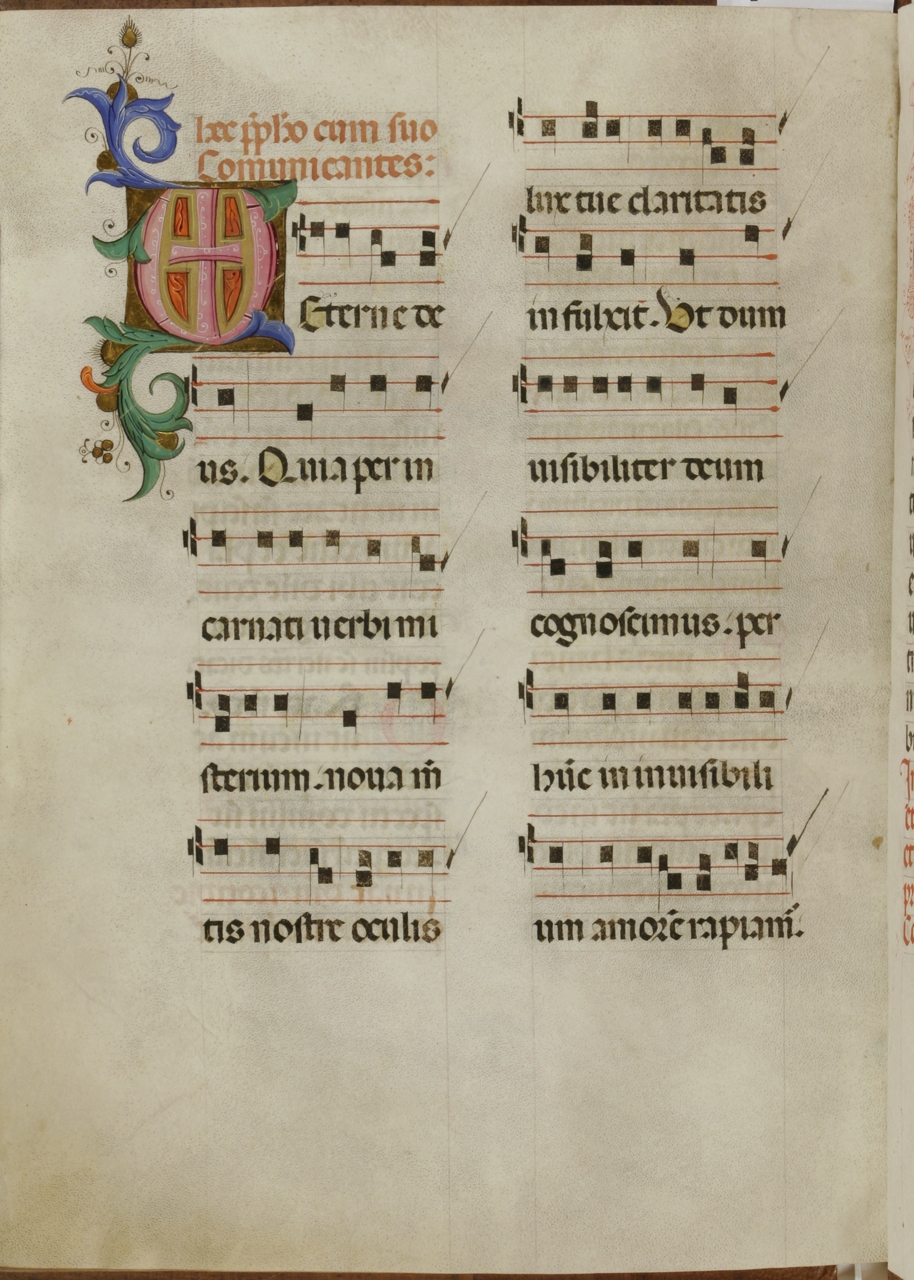 hec p̄p̄ho cum suo
Comunicantes:
Eterne de
us. Quia per in
carnati uerbi mi
sterium. noua m̄
tis nostre oculis
lux tue claritatis
infulxit. Vt dum
uisibiliter deum
cognoscimus. per
hūc in inuisibili
um amorē rapiam̄.